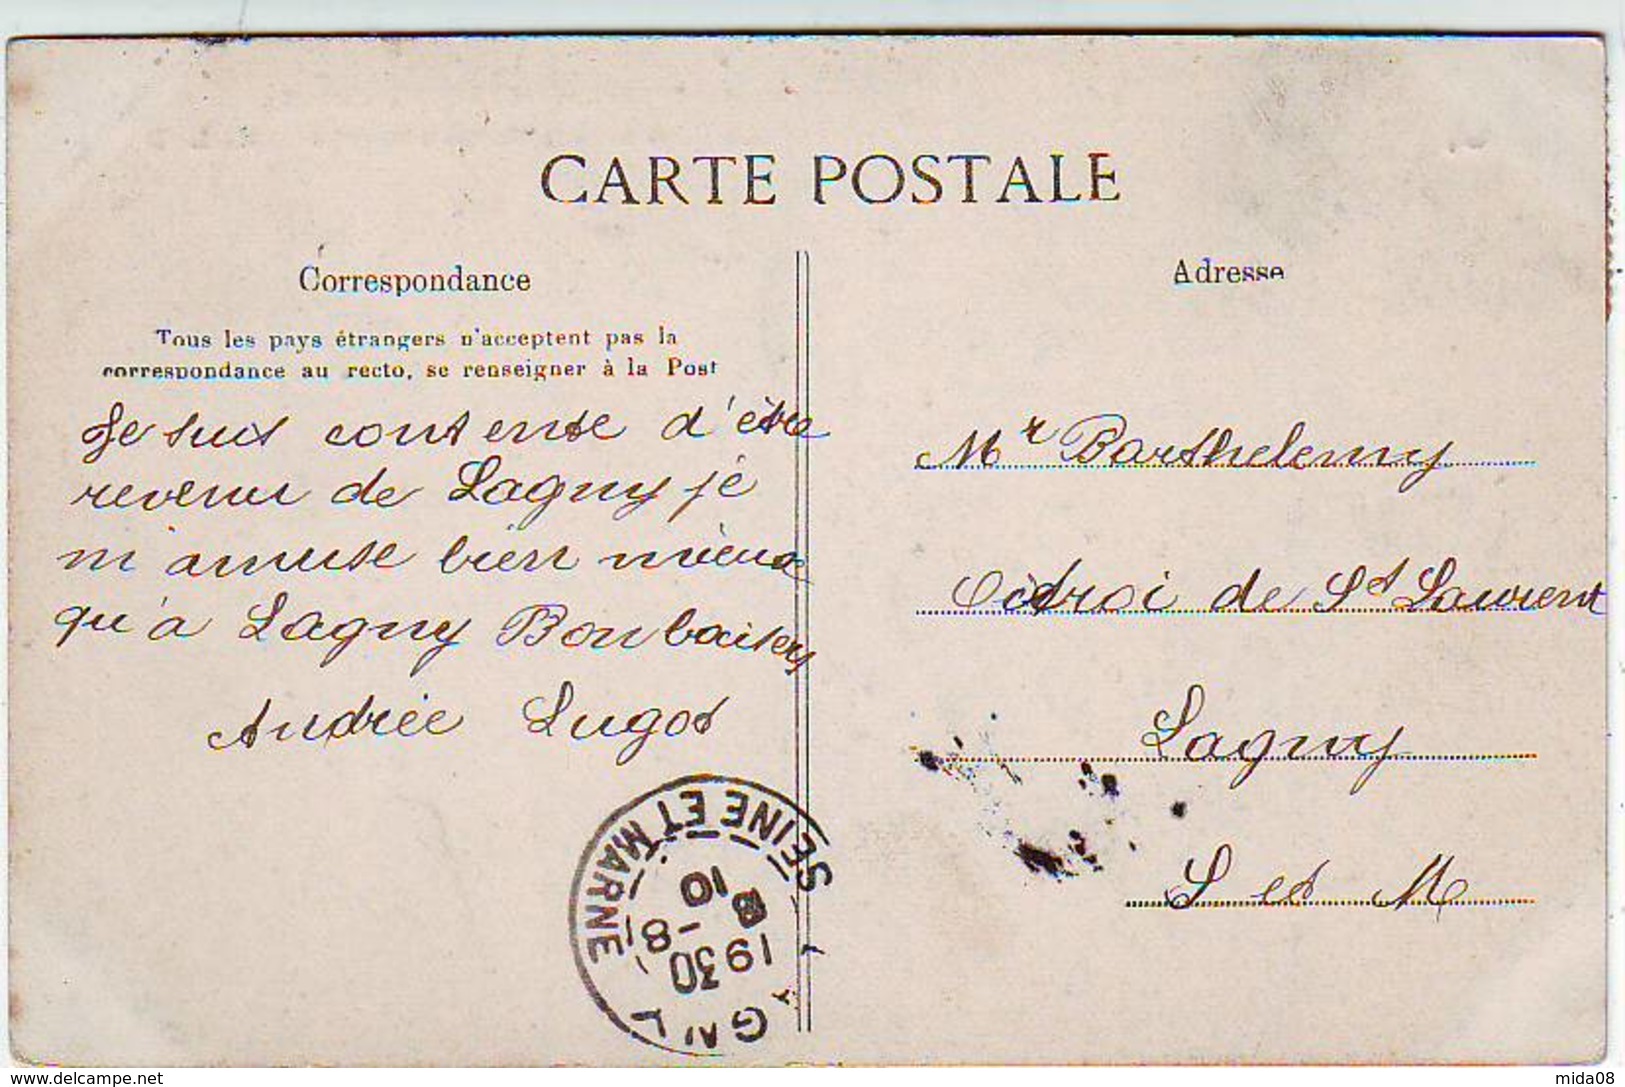 CARTE POSTALE
Correspondance
Tous les pays étrangers n'acceptent pas la
correspondance au recto, se renseigner à la Post
Je suis contente d'être
revenu de Lagny je
m'amuse bien mieux
qu'à Lagny Bon baisers
Andrée Lugot
Adresse
Mr Barthelemy
Octroi de St Laurent
Lagny
S et M
SEINE ET MARNE
10
8-8
1930
delcampe.net
mida08